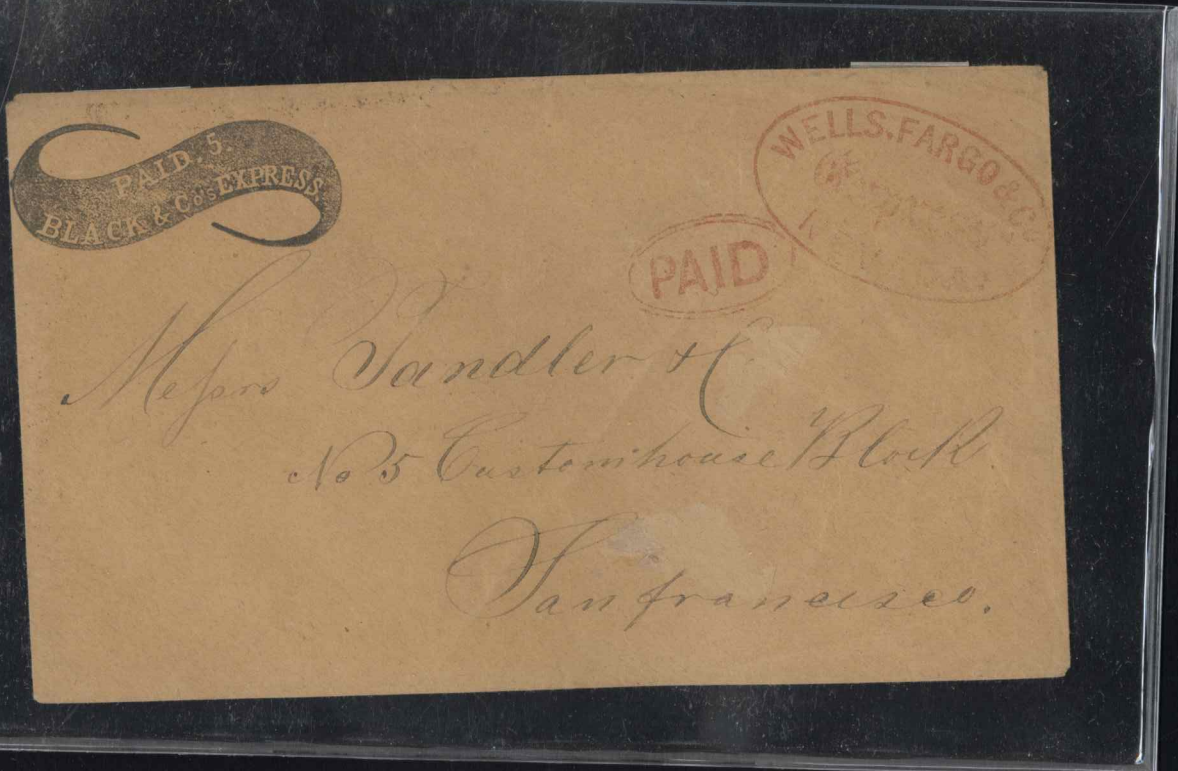 PAID. 5.
BLACK & Co's EXPRESS.
WELLS, FARGO & Co.
PAID
Messrs Sandler & C.
No 5 Customhouse Block
San francisco.